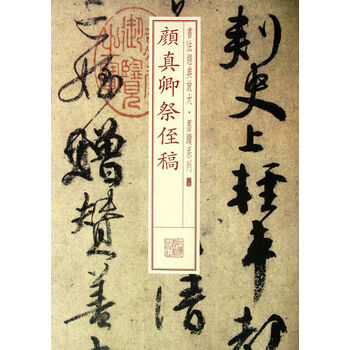 刺史上輕車都
書法經典放大·墨跡系列
清
顔真卿祭侄稿
亡姪贈贊善
御覽